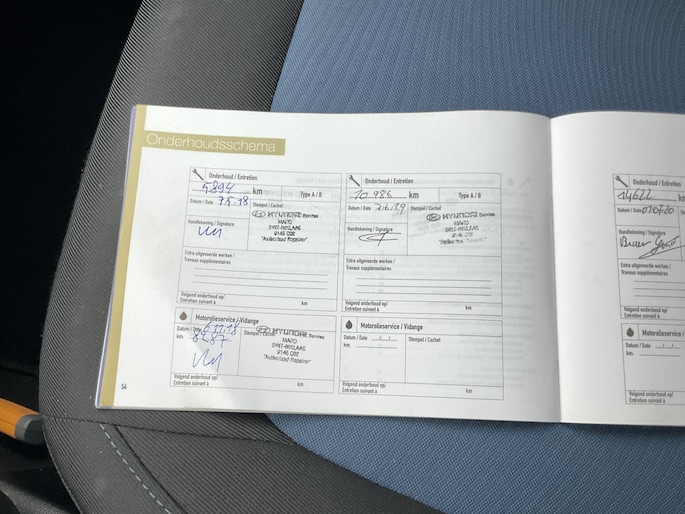 Onderhoudsschema
Onderhoud / Entretien
5894 km Type A / B
Datum / Date 7.5.18 Stempel / Cachet
HYUNDAI Service
MAIYO
SINT-NIKLAAS
9145 C02
"Authorized Repairer"
Handtekening / Signature
Extra uitgevoerde werken /
Travaux supplémentaires
Volgend onderhoud op/
Entretien suivant à km
Motorolieservice / Vidange
Datum / Date 6.11.18 Stempel / Cachet
km: 8287
HYUNDAI Service
SINT-NIKLAAS
9145 C02
"Authorized Repairer"
Volgend onderhoud op/
Entretien suivant à km
54
Onderhoud / Entretien
10.986 km Type A / B
Datum / Date 7.6.19 Stempel / Cachet
HYUNDAI Service
Handtekening / Signature
Extra uitgevoerde werken /
Travaux supplémentaires
Volgend onderhoud op/
Entretien suivant à km
Motorolieservice / Vidange
Datum / Date Stempel / Cachet
km:
Volgend onderhoud op/
Entretien suivant à km
Onderhoud / Entretien
14622
Datum / Date 07/07/20
Handtekening / Signature
Extra uitgevoerde werken /
Travaux supplémentaires
Volgend onderhoud op/
Entretien suivant à
Motorolieservice /
Datum / Date
km:
Volgend onderhoud op/
Entretien suivant à